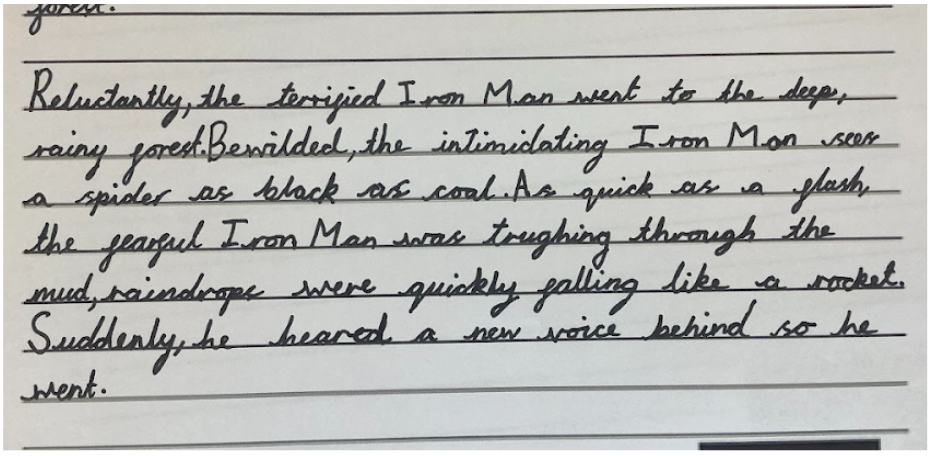 forest.
Reluctantly, the terrified Iron Man went to the deep,
rainy forest. Bewilded, the intimidating Iron Man sees
a spider as black as coal. As quick as a flash,
the fearful Iron Man was trughing through the
mud, raindrops were quickly falling like a rocket.
Suddenly, he heared a new voice behind so he
went.